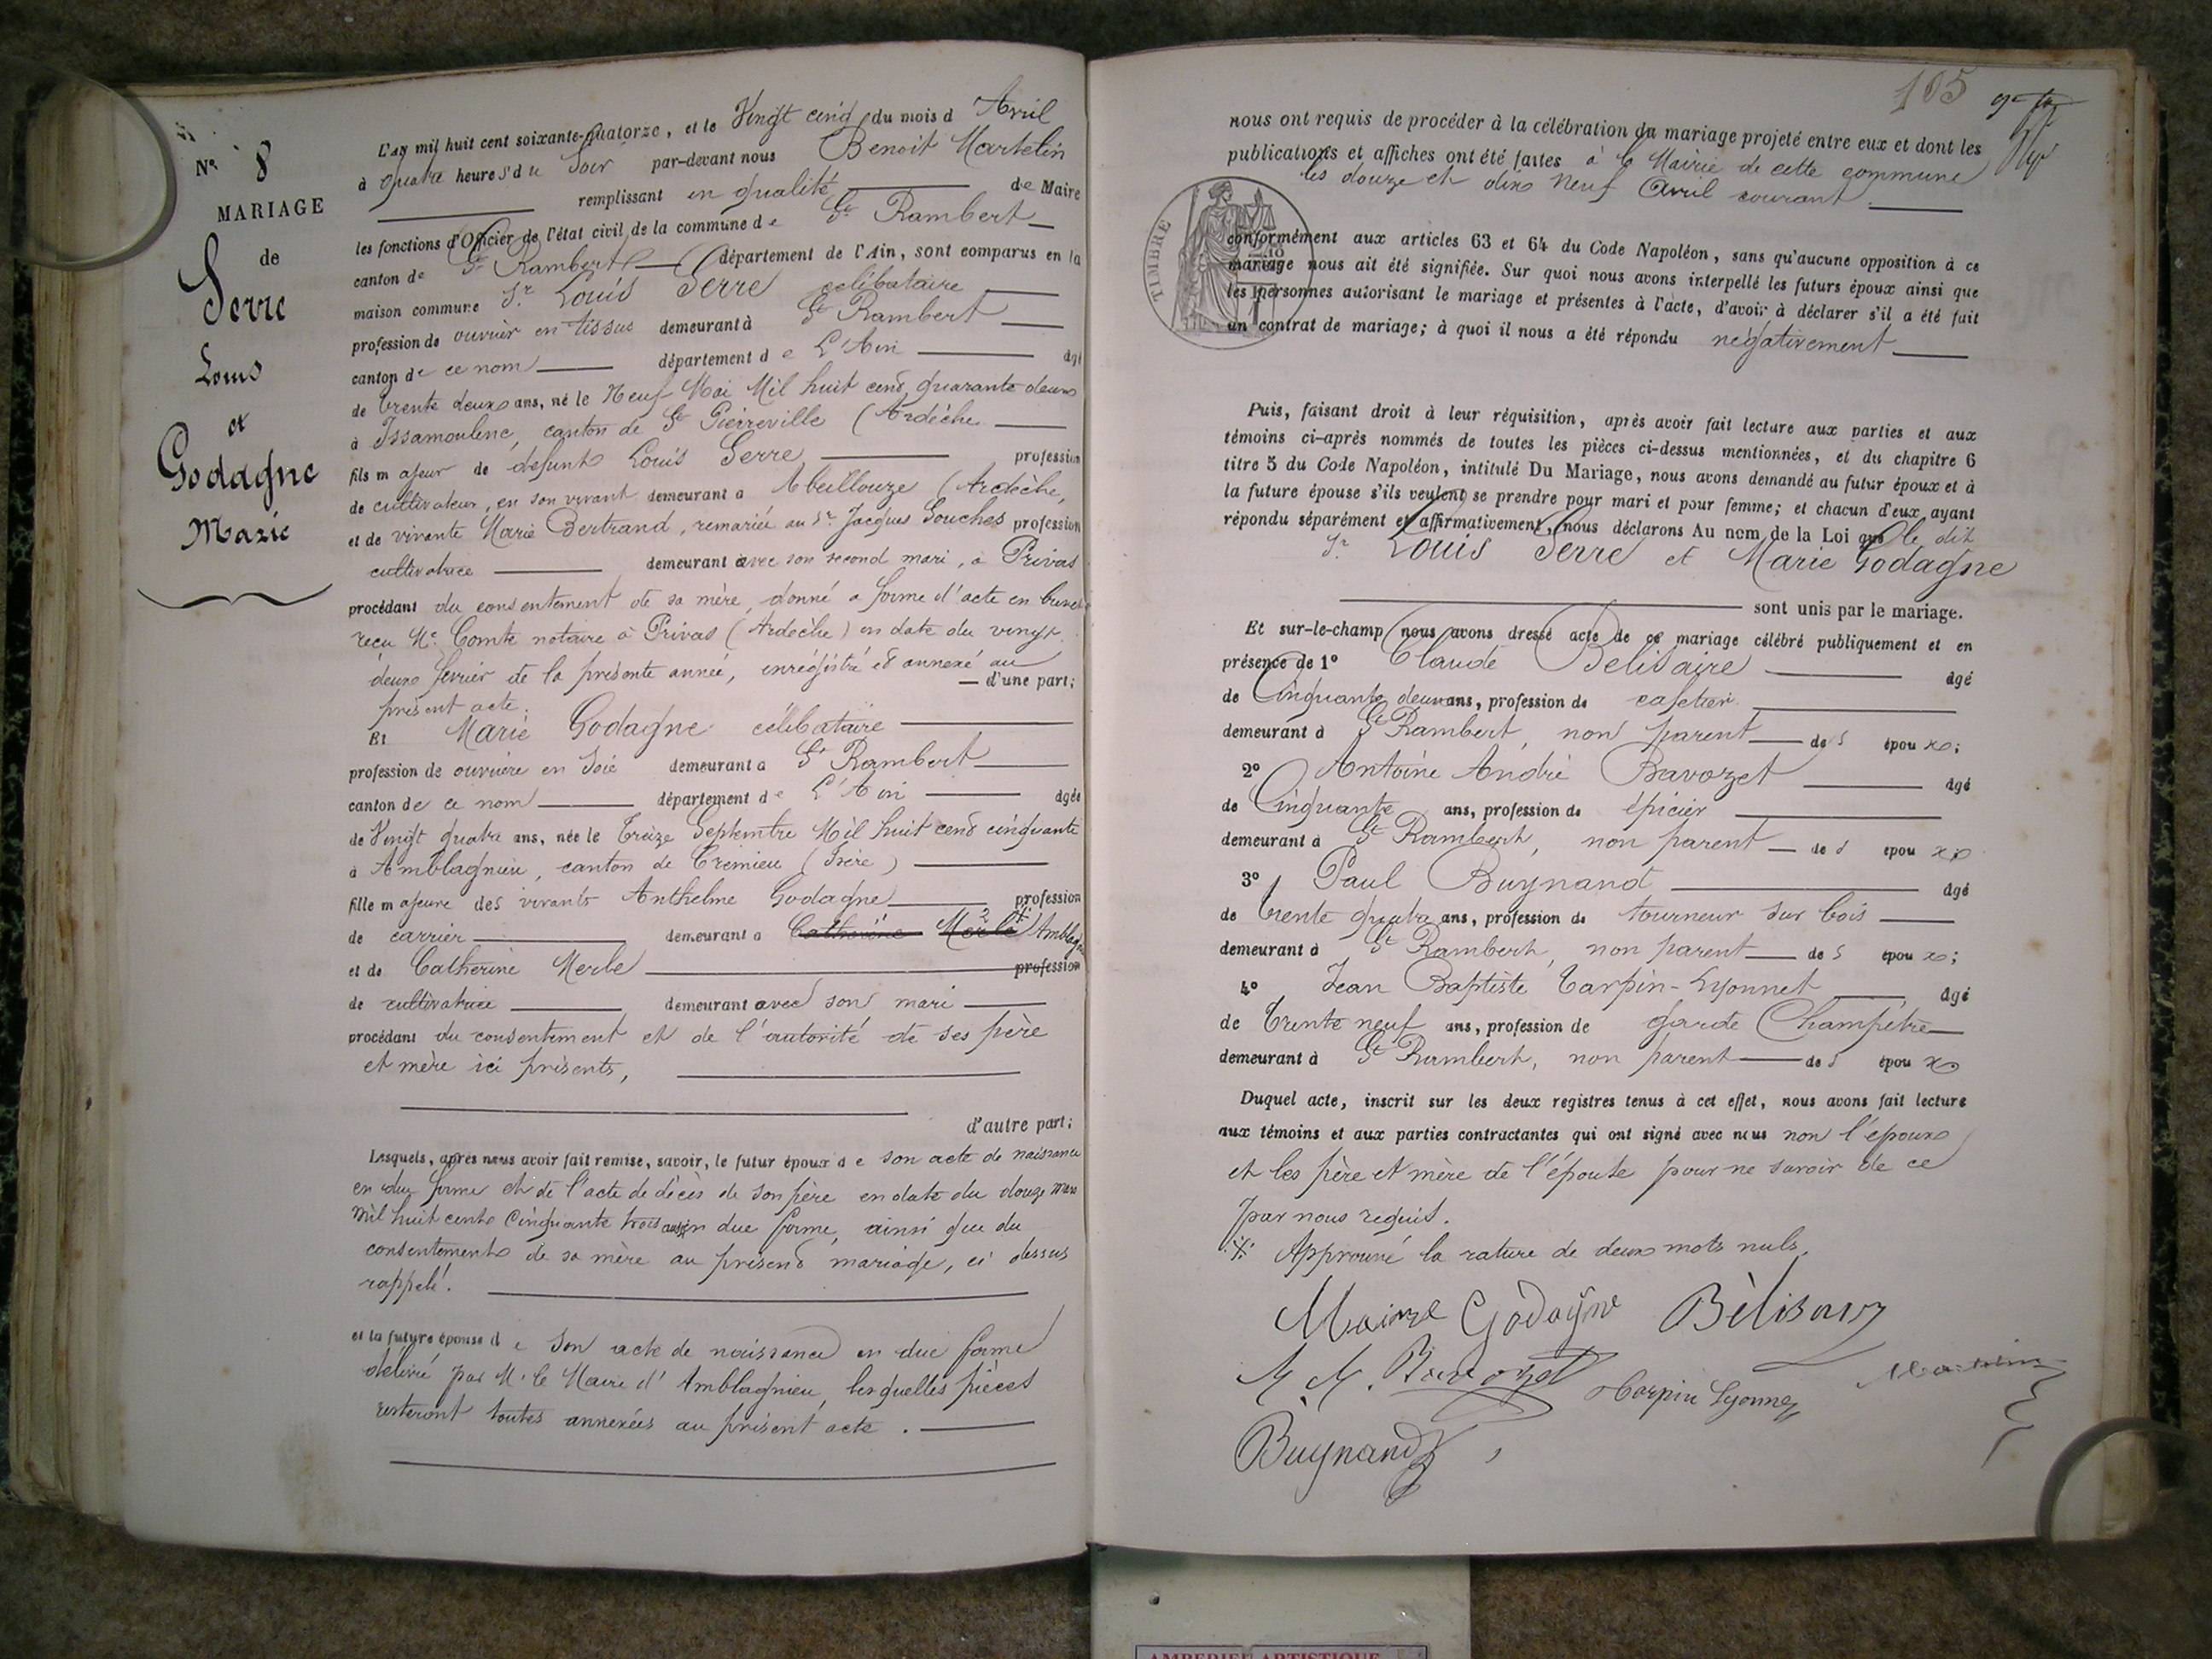 N° 8
MARIAGE
de
Serre
Louis
et
Godagne
Marie
L'an mil huit cent soixante-quatorze, et le Vingt cinq du mois d Avril
à quatre heures du Soir par-devant nous Benoit Martelin
remplissant en qualité de Maire
les fonctions d'Officier de l'état civil de la commune de St Rambert
canton de St Rambert département de l'Ain, sont comparus en la
maison commune Sr Louis Serre célibataire
profession de ouvrier en tissus demeurant à St Rambert
canton de ce nom département de L'Ain âgé
de trente deux ans, né le Neuf Mai Mil huit cent quarante deux
à Issamoulenc, canton de St Pierreville (Ardèche
fils majeur de defunt Louis Serre profession
de cultivateur, en son vivant demeurant a (Ardèche,
et de vivante Marie Bertrand, remariée au Sr Jacques Souches profession
cultivatrice demeurant avec son second mari, à Privas
procédant du consentement de sa mère, donné a forme d'acte en brevet
reçu Me Comte notaire à Privas (Ardèche) en date du vingt
deux fevrier de la présente année, enregistré et annexé au
présent acte. d'une part;
Et Marie Godagne célibataire
profession de ouvrière en Soie demeurant a St Rambert
canton de ce nom département de L'Ain âgée
de Vingt quatre ans, née le Treize Septembre Mil huit cent cinquante
à Amblagnieu, canton de Crémieu (Isère)
fille majeure des vivants Anthelme Godagne profession
de carrier demeurant a Catherine Merle Amblagnieu
et de Catherine Merle profession
de cultivatrice demeurant avec son mari
procédant du consentement et de l'autorité de ses père
et mère ici présents,
d'autre part;
Lesquels, après nous avoir fait remise, savoir, le futur époux de son acte de naissance
en due forme et de l'acte de décès de son père en date du douze mars
mil huit cent Cinquante trois aussi en due forme, ainsi que du
consentement de sa mère au présent mariage, ci dessus
rappelé.
et la future épouse de Son acte de naissance en due forme
délivré par Mr le Maire d'Amblagnieu, lesquelles pièces
resteront toutes annexées au présent acte.
105
nous ont requis de procéder à la célébration du mariage projeté entre eux et dont les
publications et affiches ont été faites à la Mairie de cette commune
les douze et dix Neuf Avril courant
TIMBRE
conformément aux articles 63 et 64 du Code Napoléon, sans qu'aucune opposition à ce
mariage nous ait été signifiée. Sur quoi nous avons interpellé les futurs époux ainsi que
les personnes autorisant le mariage et présentes à l'acte, d'avoir à déclarer s'il a été fait
un contrat de mariage; à quoi il nous a été répondu négativement
Puis, faisant droit à leur réquisition, après avoir fait lecture aux parties et aux
témoins ci-après nommés de toutes les pièces ci-dessus mentionnées, et du chapitre 6
titre 5 du Code Napoléon, intitulé Du Mariage, nous avons demandé au futur époux et à
la future épouse s'ils veulent se prendre pour mari et pour femme; et chacun d'eux ayant
répondu séparément et affirmativement, nous déclarons Au nom de la Loi que le dit
Sr Louis Serre et Marie Godagne
sont unis par le mariage.
Et sur-le-champ nous avons dressé acte de ce mariage célébré publiquement et en
présence de 1° Claude Belisaire âgé
de Cinquante deux ans, profession de cafetier
demeurant à St Rambert, non parent des époux;
2° Antoine André Bavozet âgé
de Cinquante ans, profession de épicier
demeurant à St Rambert, non parent des époux
3° Paul Buynand âgé
de trente quatre ans, profession de tourneur sur bois
demeurant à St Rambert, non parent des époux;
4° Jean Baptiste Tarpin-Lyonnet âgé
de Trente neuf ans, profession de garde Champêtre
demeurant à St Rambert, non parent des époux
Duquel acte, inscrit sur les deux registres tenus à cet effet, nous avons fait lecture
aux témoins et aux parties contractantes qui ont signé avec nous non l'époux
et les père et mère de l'épouse pour ne savoir de ce
par nous requis.
Approuvé la rature de deux mots nuls.
Godagne Bèlisair
Bavozet Tarpin Lyonnet
Buynand
AMBERIEU ARTISTIQUE